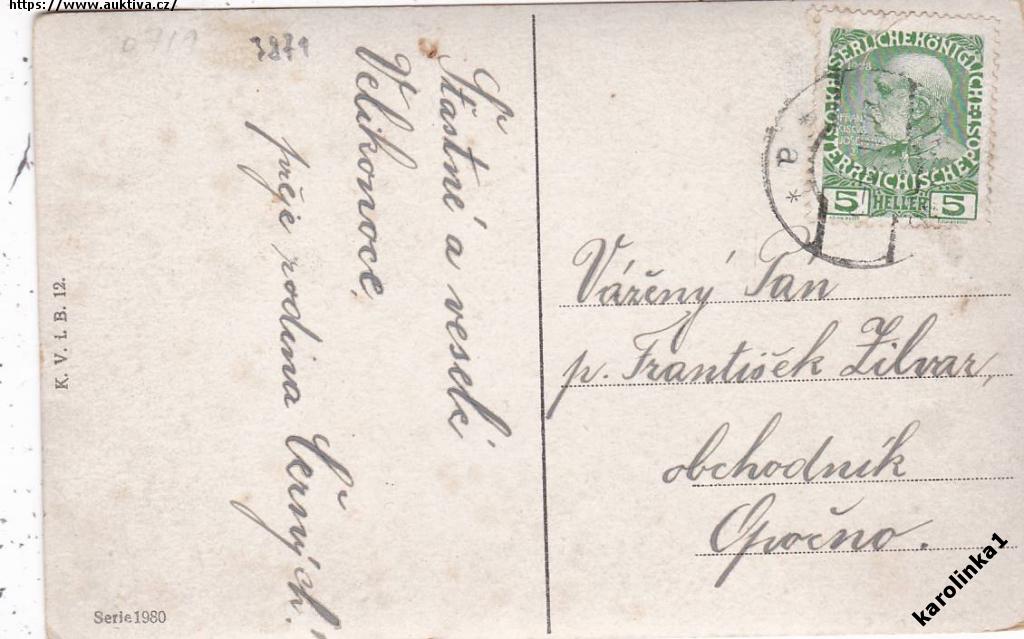 https://www.auktiva.cz/
0719
3871
Šťastné a veselé
Velikonoce
přeje rodina Černých.
K. V. i. B. 12.
Serie 1980
KAISERLICHE KÖNIGLICHE ÖSTERREICHISCHE POST
1908
FRAN
CISCUS
JOSEPH
5 HELLER 5
* a *
Vážený Pan
p. František Žilvar,
obchodník
Opočno.
karolinka1